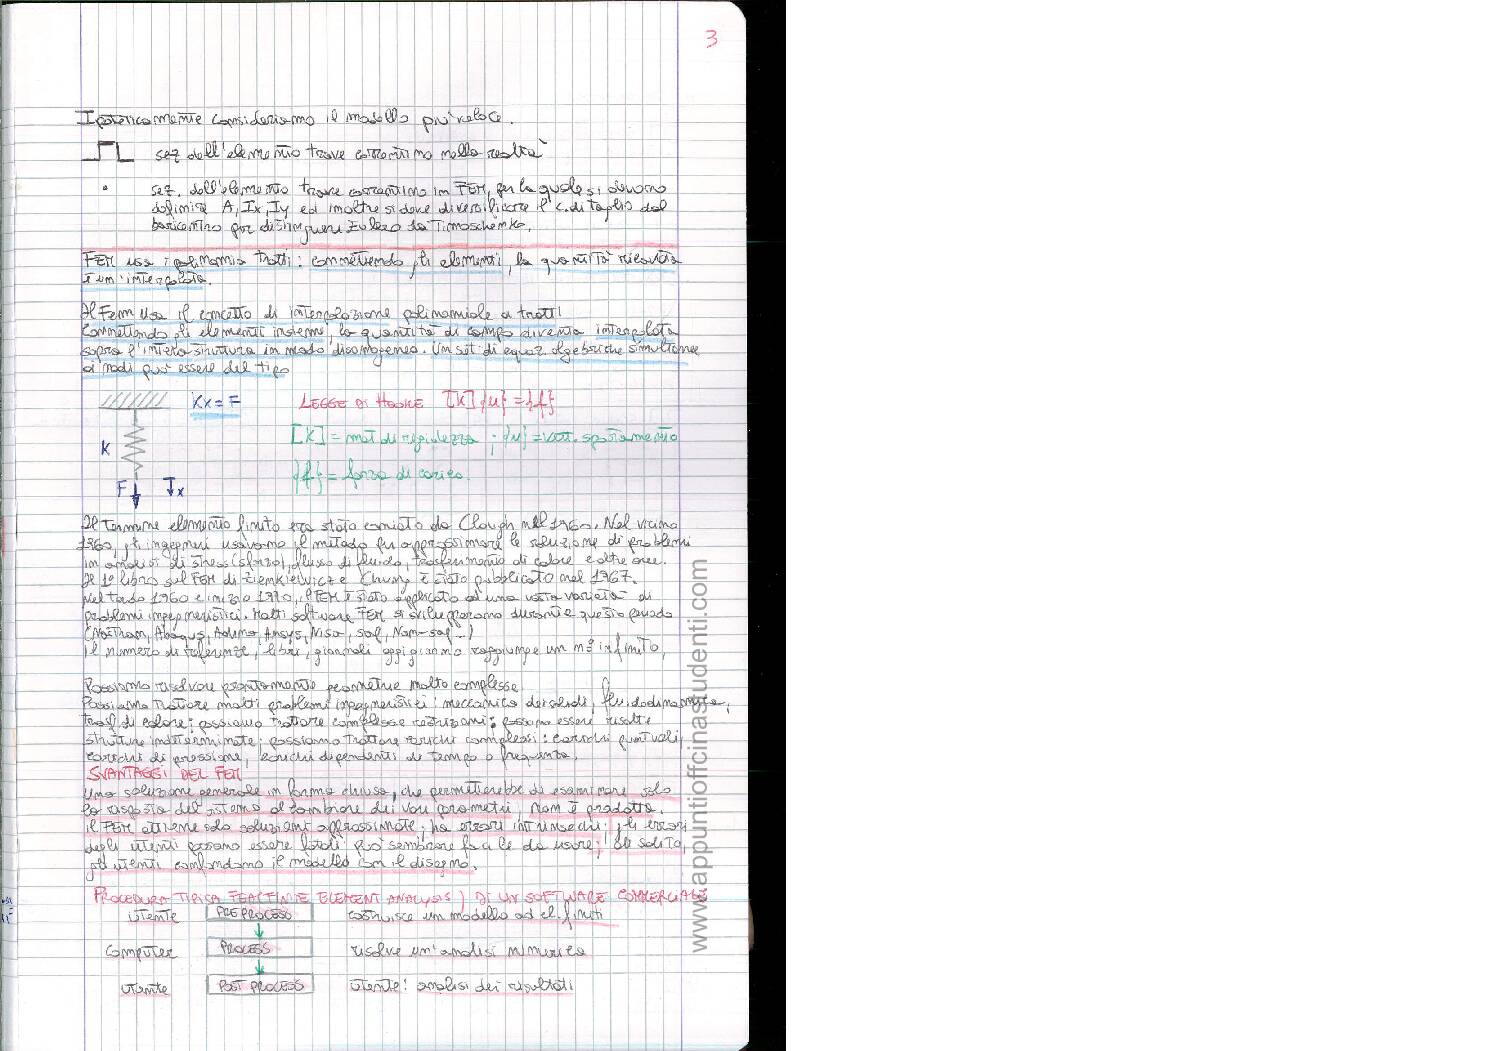 3
Ipoteticamente consideriamo il modello più veloce.
sez dell'elemento trave correntino nella realtà
sez. dell'elemento trave correntino in FEM, per la quale si devono
definire A, Ix, Iy ed inoltre si deve diversificare il c. di taglio dal
baricentro per distinguere Eulero da Timoschenko.
FEM usa i polinomi a tratti: connettendo gli elementi, la quantità ricavata
è un'interpolata.
Il Fem usa il concetto di interpolazione polinomiale a tratti
Connettendo gli elementi insieme, la quantità di campo diventa interpolata
sopra l'intera struttura in modo disomogeneo. Un set di equaz. algebriche simultanee
ai nodi può essere del tipo
Kx = F LEGGE DI HOOKE [K]{u} = {f}
K [K] = mat di rigidezza ; {u} = vett. spostamento
{f} = forza di carico.
F x
Il termine elemento finito era stato coniato da Clough nel 1960. Nel vicino
1960, gli ingegneri usavano il metodo per approssimare le soluzione di problemi
in analisi di stress (sforzo), flusso di fluido, trasferimento di calore e altre aree.
Il 1° libro sul FEM di Zienkiewicz e Chung è stato pubblicato nel 1967.
Nel tardo 1960 e inizio 1970, il FEM è stato applicato ad una vasta varietà di
problemi ingegneristici. Molti software FEM si svilupparono durante questo periodo
(Nastran, Abaqus, Adina, Ansys, Nisa, sap, Nam-sap...)
il numero di referenze, libri, giornali oggi giorno raggiunge un n° infinito,
Possiamo risolvere prontamente geometrie molto complesse
Possiamo trattare molti problemi ingegneristici: meccanica dei solidi, fluidodinamica,
trasf di calore; possiamo trattare complesse restrizioni: possono essere risolte
strutture indeterminate; possiamo trattare carichi complessi: carichi puntuali,
carichi di pressione, carichi dipendenti da tempo o frequenza.
SVANTAGGI DEL FEM
Una soluzione generale in forma chiusa, che permetterebbe di esaminare solo
la risposta del sistema al cambiare dei vari parametri, non è prodotta.
il FEM ottiene solo soluzioni approssimate; ha errori intrinsechi; gli errori
degli utenti possono essere fatali: può sembrare facile da usare; di solito,
gli utenti confondono il modello con il disegno.
PROCEDURA TIPICA FEA (FINITE ELEMENT ANALYSIS) DI UN SOFTWARE COMMERCIALE
utente PREPROCESO costruisce un modello ad el. finiti
Computer PROCESS risolve un'analisi numerica
utente POST PROCESS utente: analisi dei risultati
www.appuntiofficinastudenti.com